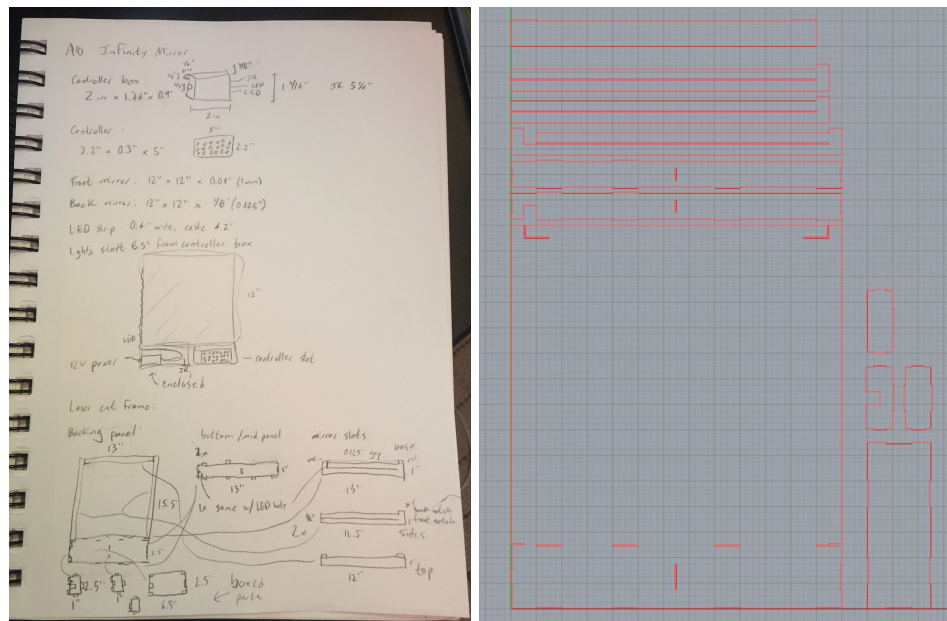 A10 Infinity Mirror
Controller box:
2 in × 1.44" × 0.9"
1/4"
IR
LED
LED
1 9/16"
IR 5 1/2"
2 in
Controller:
2.2" × 0.3" × 5"
5"
2.2"
Front mirror: 12" × 12" × 0.04" (1mm)
Back mirror: 12" × 12" × 1/8" (0.125")
LED strip: 0.4" wide, cable 4.2"
Lights start 8.5" from controller box
12"
LED
12V power
IR
controller slot
enclosed
Laser cut frame:
Backing panel:
13"
15.5"
2.5"
bottom/mid panel
2x
1"
13"
1x same w/ LED hole
mirror slots
0.125" gap
1"
13"
2x
12.5"
sides
back notch
front notch
12"
top
2.5"
1"
1"
6.5"
2.5"
boxed
parts